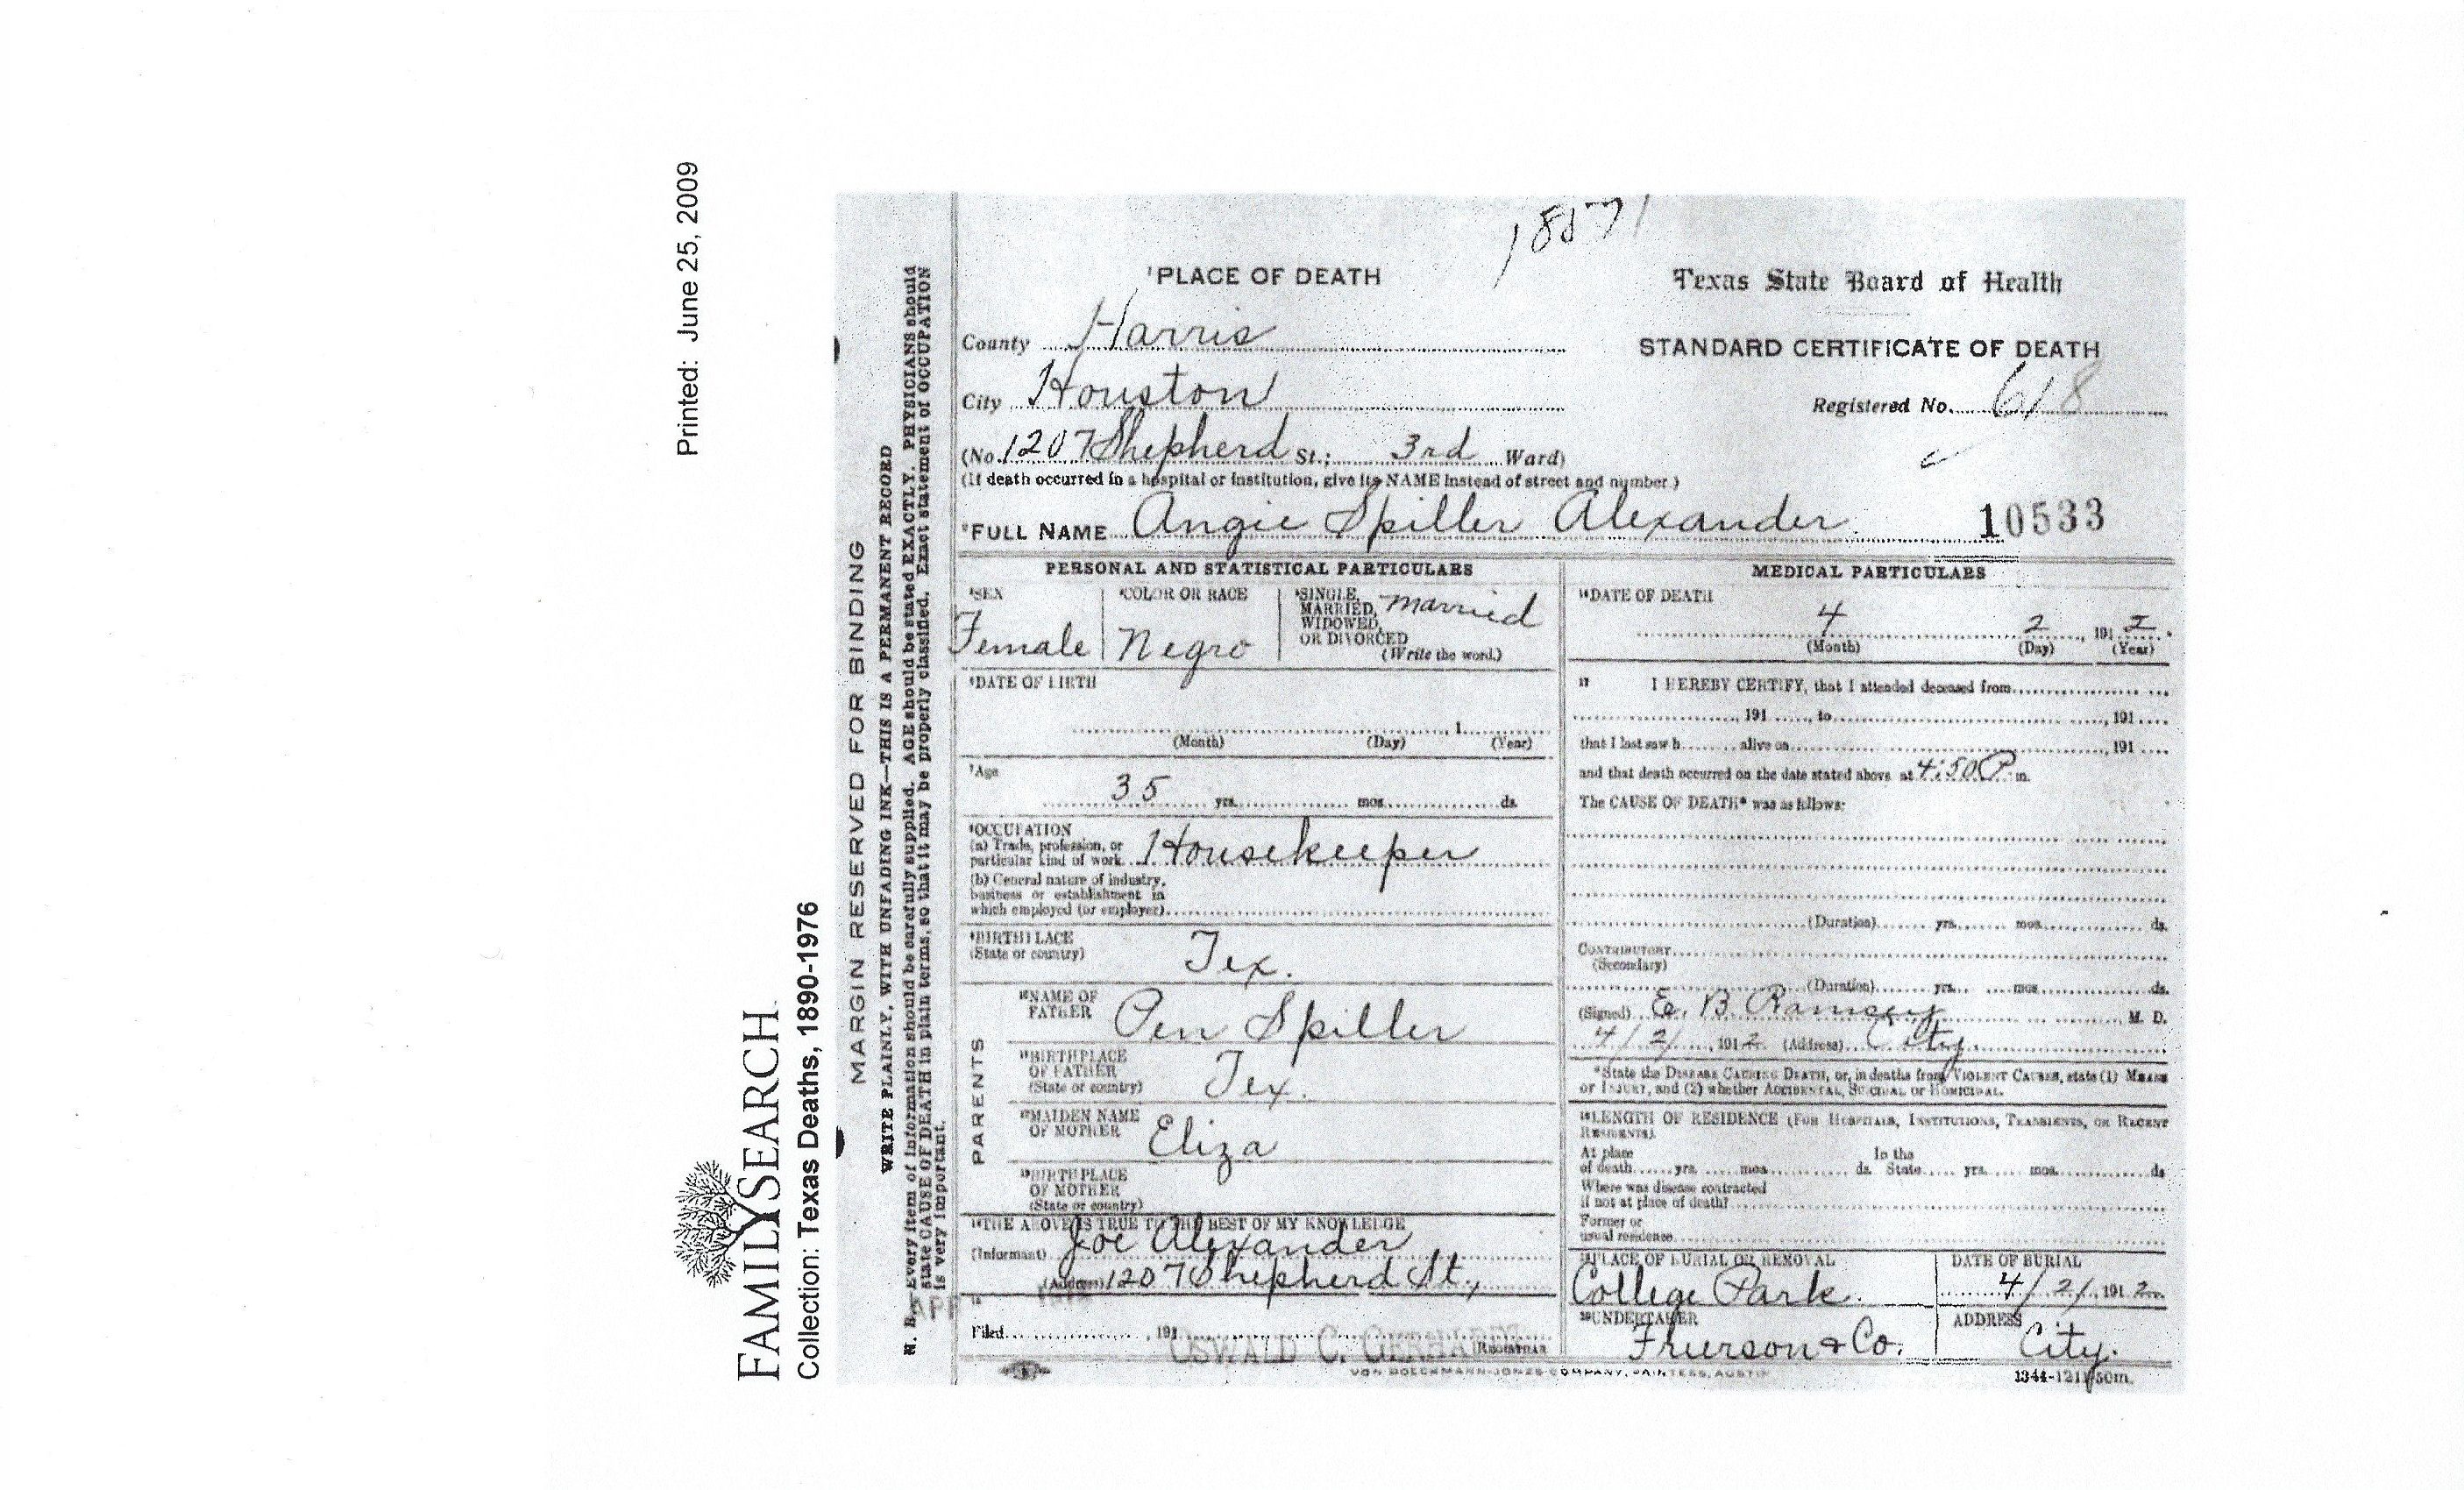 Printed: June 25, 2009
FAMILYSEARCH
Collection: Texas Deaths, 1890-1976
MARGIN RESERVED FOR BINDING
WRITE PLAINLY, WITH UNFADING INK—THIS IS A PERMANENT RECORD
N. B.—Every item of information should be carefully supplied. AGE should be stated EXACTLY. PHYSICIANS should
state CAUSE OF DEATH in plain terms, so that it may be properly classified. Exact statement of OCCUPATION
is very important.
1PLACE OF DEATH
County Harris
City Houston
(No. 1207 Shepherd St.; 3rd Ward)
(If death occurred in a hospital or institution, give its NAME instead of street and number.)
Texas State Board of Health
STANDARD CERTIFICATE OF DEATH
Registered No. 618
2FULL NAME Angie Spiller Alexander
10533
PERSONAL AND STATISTICAL PARTICULARS
3SEX
Female
4COLOR OR RACE
Negro
5SINGLE, MARRIED, WIDOWED, OR DIVORCED
married
(Write the word.)
6DATE OF BIRTH
1
(Month) (Day) (Year)
7Age
35 yrs. mos. ds.
8OCCUPATION
(a) Trade, profession, or
particular kind of work Housekeeper
(b) General nature of industry,
business or establishment in
which employed (or employer)
9BIRTHPLACE
(State or country) Tex.
PARENTS
10NAME OF
FATHER Pen Spiller
11BIRTHPLACE
OF FATHER
(State or country) Tex.
12MAIDEN NAME
OF MOTHER Eliza
13BIRTHPLACE
OF MOTHER
(State or country)
14THE ABOVE IS TRUE TO THE BEST OF MY KNOWLEDGE
(Informant) Joe Alexander
(Address) 1207 Shepherd St.,
15
APR
Filed , 191
OSWALD C. GERHARDT
REGISTRAR
MEDICAL PARTICULARS
16DATE OF DEATH
4 2, 1912.
(Month) (Day) (Year)
17 I HEREBY CERTIFY, that I attended deceased from
, 191 , to , 191
that I last saw h alive on , 191
and that death occurred on the date stated above at 4:50 P m.
The CAUSE OF DEATH* was as follows:
(Duration) yrs. mos. ds.
CONTRIBUTORY
(Secondary)
(Duration) yrs. mos. ds.
(Signed) E. B. Ramsey M. D.
4/2/, 1912 (Address) City
*State the DISEASE CAUSING DEATH, or, in deaths from VIOLENT CAUSES, state (1) MEANS
OF INJURY, and (2) whether ACCIDENTAL, SUICIDAL or HOMICIDAL.
18LENGTH OF RESIDENCE (FOR HOSPITALS, INSTITUTIONS, TRANSIENTS, OR RECENT
RESIDENTS).
At place In the
of death yrs. mos. ds. State yrs. mos. ds
Where was disease contracted
if not at place of death?
Former or
usual residence
19PLACE OF BURIAL OR REMOVAL
College Park.
DATE OF BURIAL
4/2/, 1912
20UNDERTAKER
Frierson & Co.
ADDRESS
City.
VON BOECKMANN-JONES COMPANY, PRINTERS, AUSTIN
1344-1211-50m.